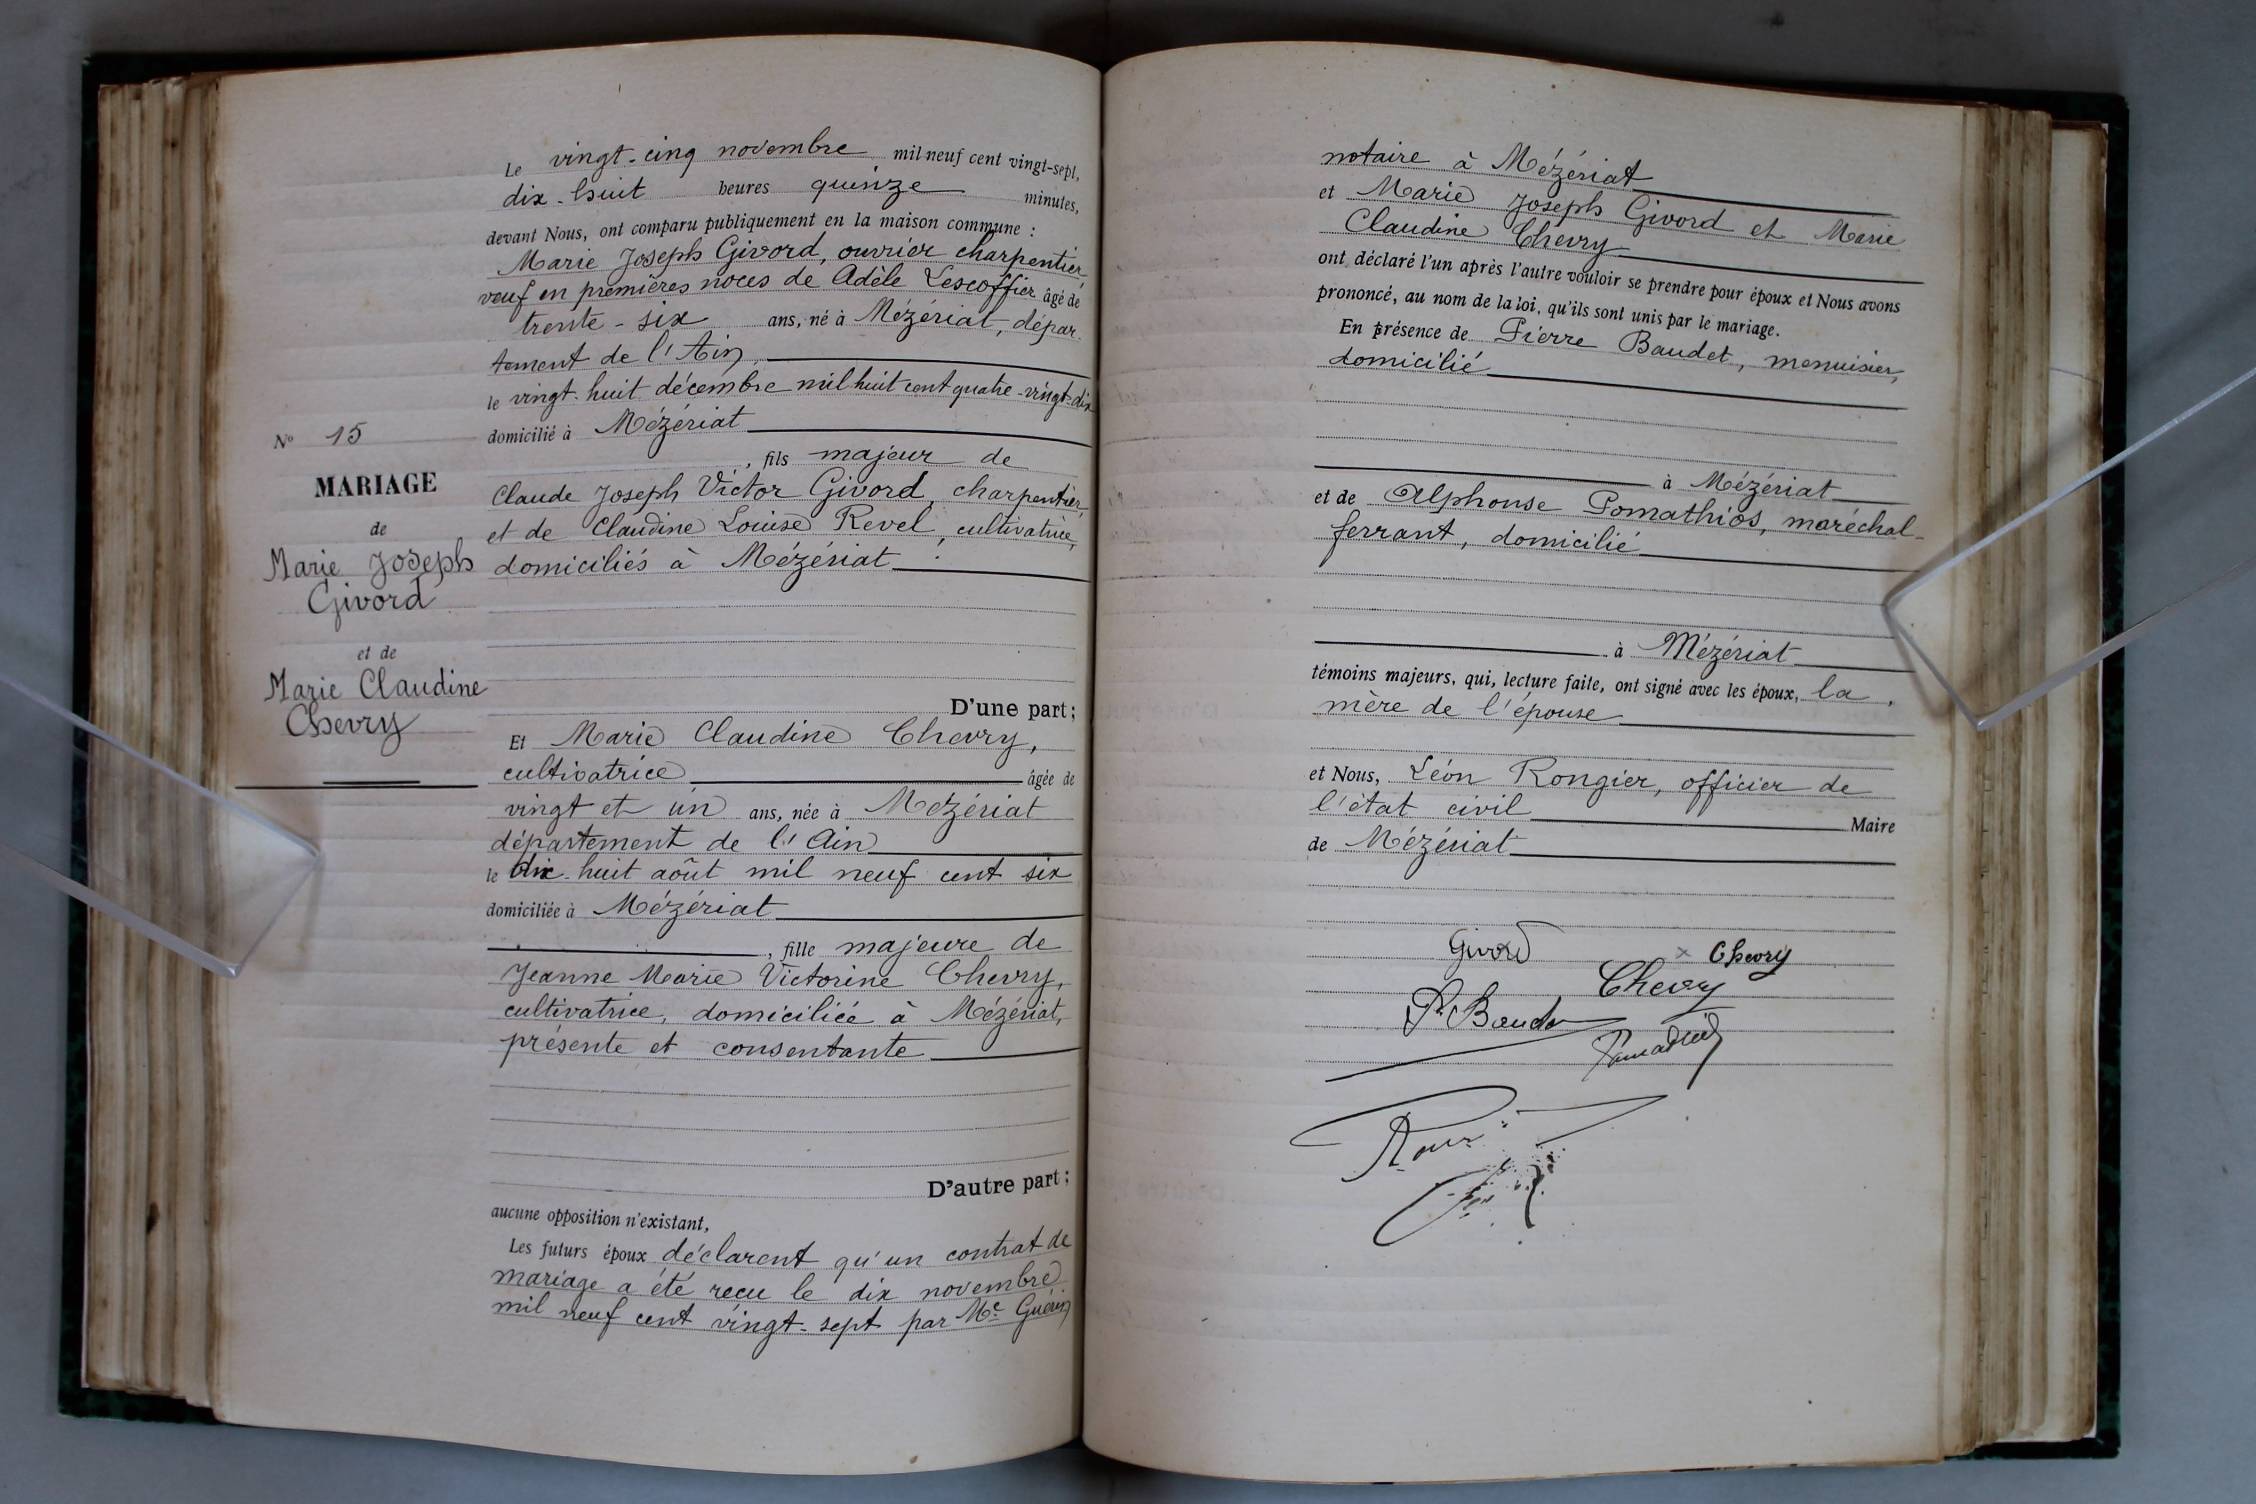 N° 15
MARIAGE
de
Marie Joseph
Givord
et de
Marie Claudine
Chevry
Le vingt-cinq novembre mil neuf cent vingt-sept,
dix-huit heures quinze minutes,
devant Nous, ont comparu publiquement en la maison commune :
Marie Joseph Givord, ouvrier charpentier
veuf en premières noces de Adèle Lescoffier âgé de
trente-six ans, né à Mézériat, dépar-
tement de l'Ain
le vingt-huit décembre mil huit cent quatre-vingt-dix
domicilié à Mézériat
, fils majeur de
Claude Joseph Victor Givord, charpentier,
et de Claudine Louise Revel, cultivatrice,
domiciliés à Mézériat
D'une part ;
Et Marie Claudine Chevry,
cultivatrice âgée de
vingt et un ans, née à Mézériat
département de l'Ain
le dix-huit août mil neuf cent six
domiciliée à Mézériat
, fille majeure de
Jeanne Marie Victorine Chevry,
cultivatrice, domiciliée à Mézériat,
présente et consentante
D'autre part ;
aucune opposition n'existant,
Les futurs époux déclarent qu'un contrat de
mariage a été reçu le dix novembre
mil neuf cent vingt-sept par Me Guérin
notaire à Mézériat
et Marie Joseph Givord et Marie
Claudine Chevry
ont déclaré l'un après l'autre vouloir se prendre pour époux et Nous avons
prononcé, au nom de la loi, qu'ils sont unis par le mariage.
En présence de Pierre Baudet, menuisier,
domicilié
à Mézériat
et de Alphonse Pomathios, maréchal-
ferrant, domicilié
à Mézériat
témoins majeurs, qui, lecture faite, ont signé avec les époux, la
mère de l'épouse
et Nous, Léon Rongier, officier de
l'état civil Maire
de Mézériat
Givord x Chevry
Chevry